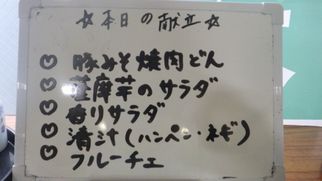 ☆本日の献立☆
♡ 豚みそ焼肉どん
♡ 薩摩芋のサラダ
♡ 香りサラダ
♡ 清汁(ハンペン・ネギ)
♡ フルーチェ